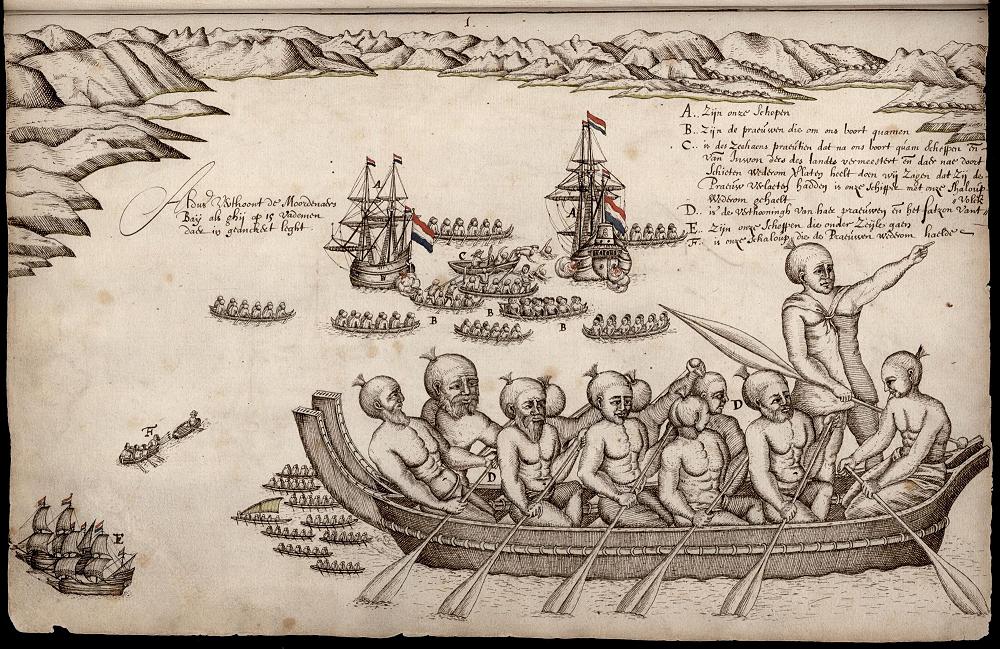 1.
Aldus Verthoont de Moordenaers
Baij als ghij op 15 Vademen
daer in geanckert leght
A.. Zijn onze Schepen
B.. Zijn de praeuwen die om ons boort quamen
C.. is des Zeehaens praeutien dat na ons boort quam Scheppen en
van Inwon ders des landts vermeestert en daer nae door
Schieten wederom Verlaten heelt doen wij Zagen dat Zij de
Praeuw verlaeten hadden is onze Schipper met onze Shaloup
Wederom gehaelt
D.. is de Verthooningh van haer praeuwen en het fatzon Vant
Volck
E.. Zijn onze Scheppen die onder Zeijle gaen
F.. is onze Schaloup die de Praeuwen wederom haelde
A
A
C
B
B
B
D
D
F
E